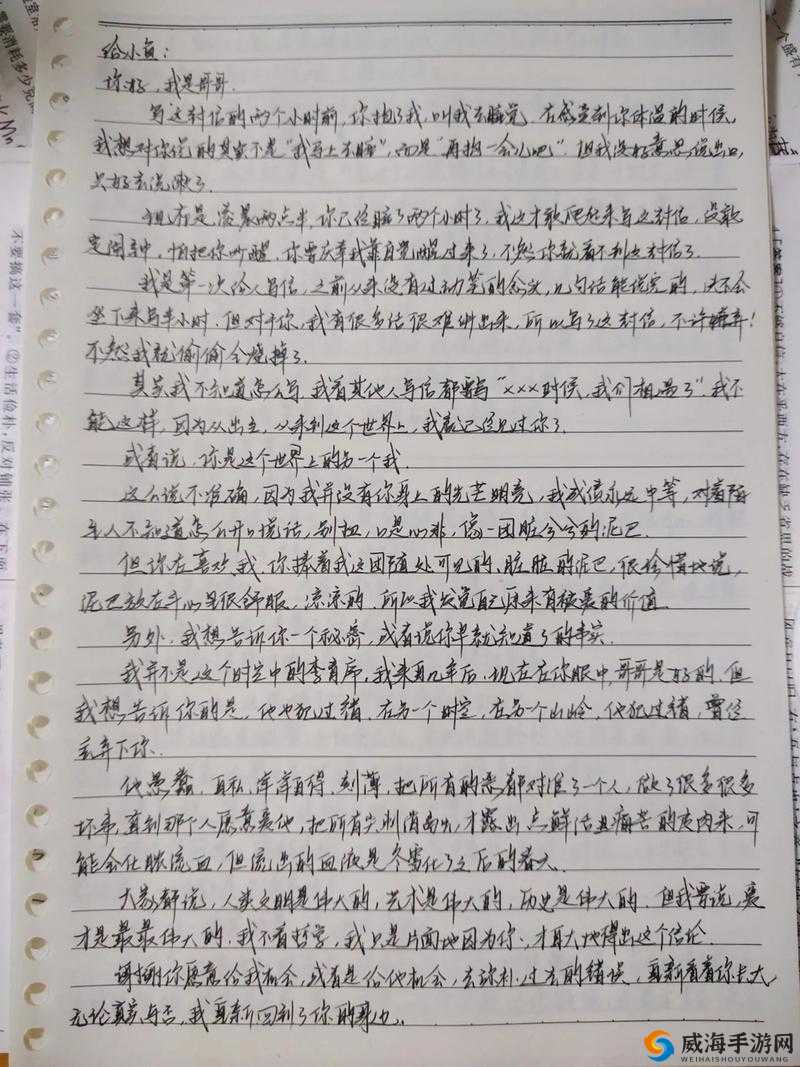 给小贞：
你好，我是哥哥。
写这封信的两个小时前，你抱了我，叫我去睡觉。在感受到你体温的时候，
我想对你说的其实不是“我马上去睡”，而是“再抱一会儿吧”。但我没好意思说出口，
只好去洗漱了。
现在是凌晨两点半，你已经睡了两个小时了，我这才敢爬起来写这封信，没敢
定闹钟，怕把你吵醒，你要庆幸我靠自觉醒过来了，不然你就看不到这封信了。
我是第一次给人写信，之前从来没有过动笔的念头，几句话能说完的，决不会
坐下来写半小时。但对于你，我有很多话很难讲出来，所以写了这封信，不许嫌弃！
不然我就偷偷全烧掉了。
其实我不知道怎么写，我看其他人写信都要写“xxx时候，我们相遇了”，我不
能这样，因为从出生，从来到这个世界上，我就已经见过你了。
或者说，你是这个世界上的另一个我。
这么说不准确，因为我并没有你身上的光芒明亮，我成绩永远中等，对着陌
生人不知道怎么开口说话，别扭，口是心非，像一团脏兮兮的泥巴。
但你在喜欢我，你捧着我这团随处可见的、脏脏的泥巴，很珍惜地说，
泥巴放在手心里很舒服，凉凉的。所以我发觉自己原来有被爱的价值。
另外，我想告诉你一个秘密，或者说你早就知道了的事实。
我并不是这个时空中的李育序，我来自几年后。现在在你眼中，哥哥是好的，但
我想告诉你的是，他也犯过错。在另一个时空，在另一个山岭，他犯过错，曾经
丢弃下你。
他愚蠢、自私、洋洋自得、刻薄，把所有的恶都对准了一个人，做了很多很多
坏事，直到那个人愿意爱他，把所有尖刺消融，才露出点鲜活且痛苦的皮肉来，可
能会化脓流血，但流出的血液是冬雪化了之后的春天。
大家都说，人类文明是伟大的，艺术是伟大的，历史是伟大的。但我要说，爱
才是最最伟大的。我不看哲学，我只是片面地因为你，才自大地得出这个结论。
谢谢你愿意给我机会，或者是给他机会，去弥补过去的错误，重新看着你长大，
无论真实与否，我重新回到了你的身边。
不要搞这一套”。②生活俭朴，反对铺张
威海手游网
WEIHAISHOUYOUWANG